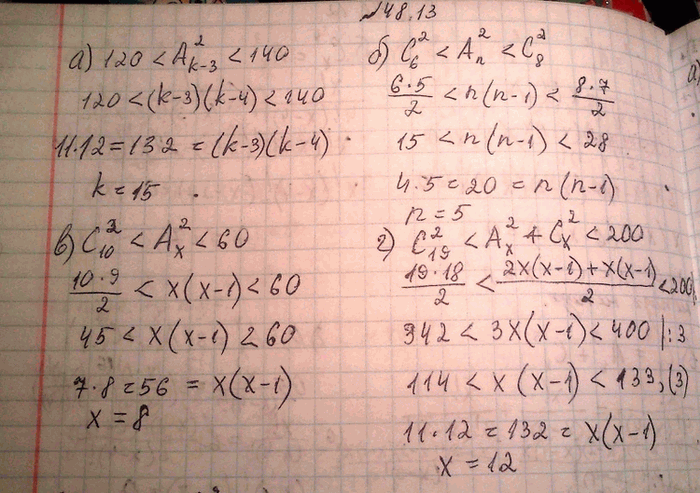 №48.13
а) 120 < A²ₖ₋₃ < 140
120 < (k-3)(k-4) < 140
11·12 = 132 = (k-3)(k-4)
k = 15
б) C₆² < Aₙ² < C₈²
6·5/2 < n(n-1) < 8·7/2
15 < n(n-1) < 28
4·5 = 20 = n(n-1)
n = 5
в) C₁₀² < Aₓ² < 60
10·9/2 < x(x-1) < 60
45 < x(x-1) < 60
7·8 = 56 = x(x-1)
x = 8
г) C₁₉² < Aₓ² + Cₓ² < 200
19·18/2 < 2x(x-1)+x(x-1)/2 < 200
342 < 3x(x-1) < 400 |:3
114 < x(x-1) < 133,(3)
11·12 = 132 = x(x-1)
x = 12